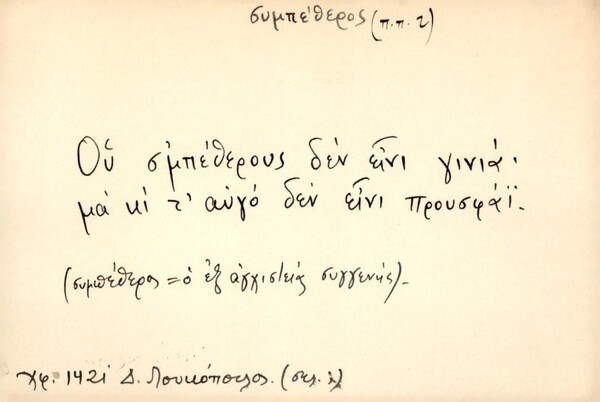 συμπέθερος (π.π. 2)
Οὗ σ'μπέθερους δὲν εἶνι γινιά·
μὰ κὶ τ' αὐγό δὲν εἶνι προυσφάϊ.
(συμπέθερος = ὁ ἐξ ἀγχιστείας συγγενής).
Χφ. 1421 Δ. Λουκόπουλος.